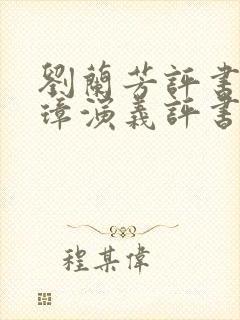 劉蘭芳評書
璋演義評書
程某偉